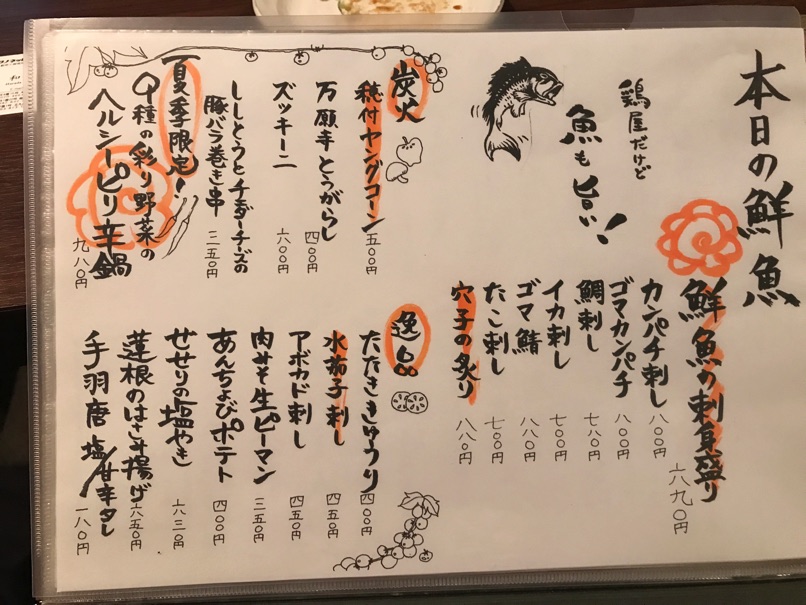 本日の鮮魚
鶏屋だけど
魚も旨い!
鮮魚の刺身盛り 一六九〇円
カンパチ刺し 八〇〇円
ゴマカンパチ 八〇〇円
鯛刺し 七八〇円
イカ刺し 七〇〇円
ゴマ鯖 八八〇円
たこ刺し 七〇〇円
穴子の炙り 八八〇円
炭火
穂付ヤングコーン 五〇〇円
万願寺とうがらし 四〇〇円
ズッキーニ 六〇〇円
ししとうとチェダーチーズの
豚バラ巻き串 三五〇円
夏季限定!
9種の彩り野菜の
ヘルシーピリ辛鍋 九八〇円
逸品
たたききゅうり 四〇〇円
水茄子刺し 四五〇円
アボカド刺し 四五〇円
肉みそ生ピーマン 三五〇円
あんちょびポテト 四〇〇円
せせりの塩やき 六三〇円
蓮根のはさみ揚げ 六五〇円
手羽唐 塩/甘辛タレ 一八〇円